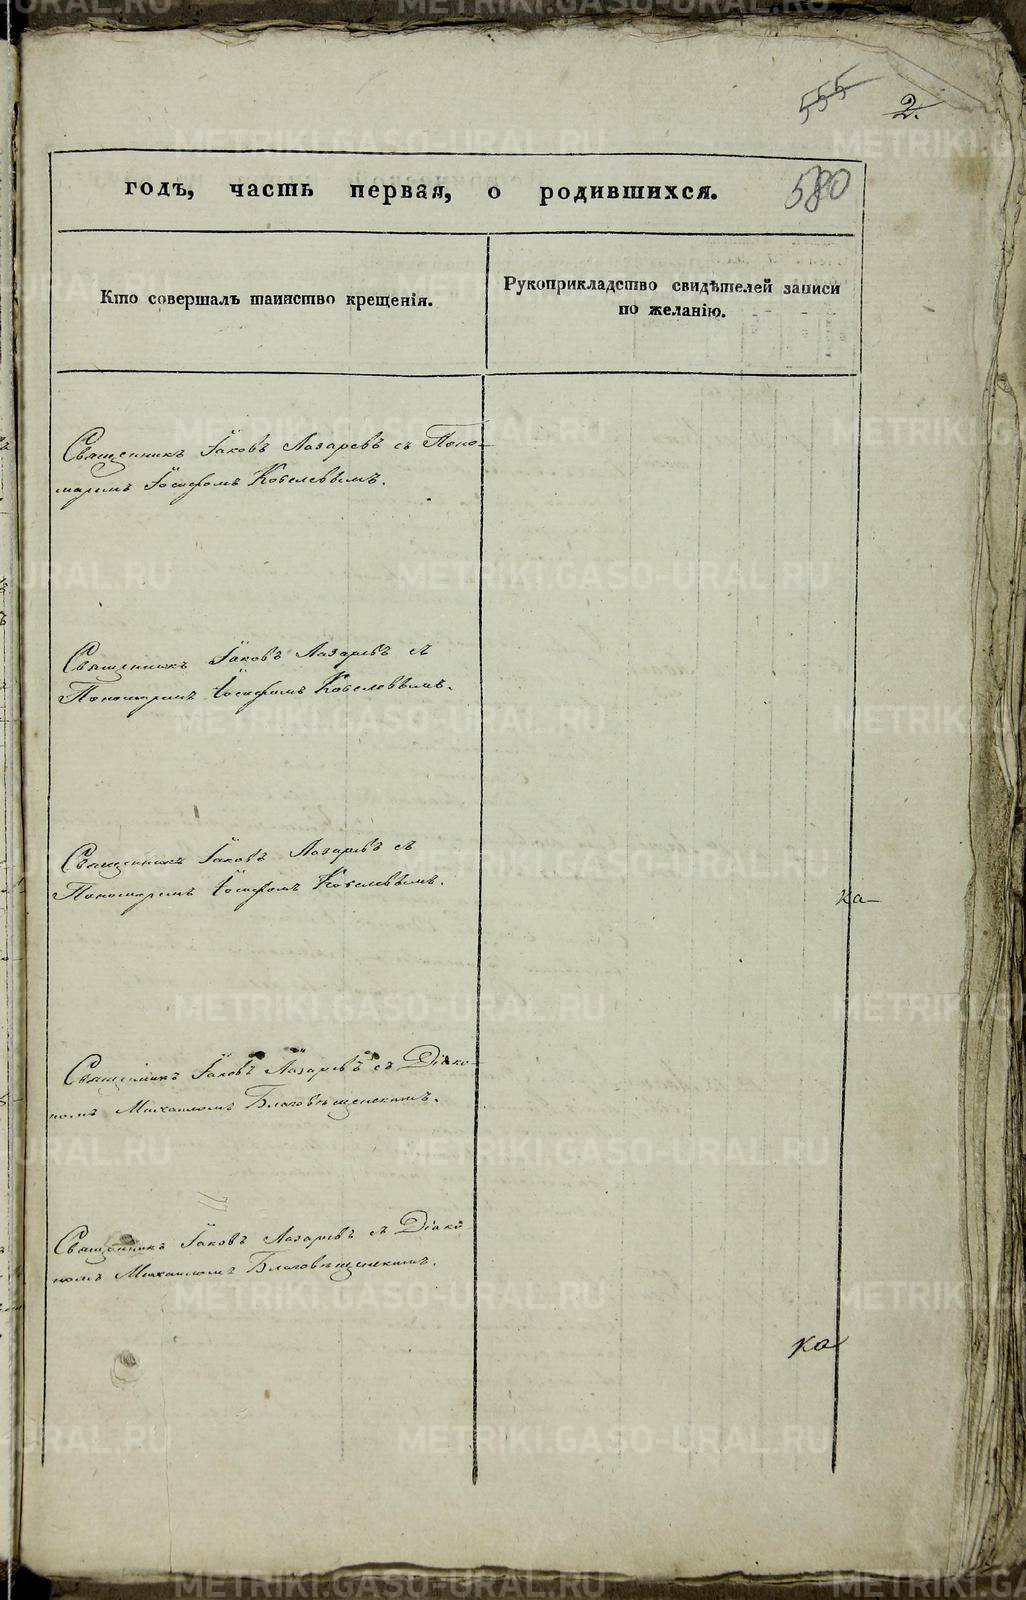 555
2.
годъ, часть первая, о родившихся.
580
Кто совершалъ таинство крещенія.
Рукоприкладство свидѣтелей записи
по желанію.
Священникъ Іаковъ Лазаревъ съ Поно-
маремъ Іосифомъ Кобелевымъ.
Священникъ Іаковъ Лазаревъ съ
Пономаремъ Іосифомъ Кобелевымъ.
Священникъ Іаковъ Лазаревъ съ
Пономаремъ Іосифомъ Кобелевымъ.
ка-
Священникъ Іаковъ Лазаревъ съ Діако-
номъ Михаиломъ Благовѣщенскимъ.
Священникъ Іаковъ Лазаревъ съ Діако
номъ Михаиломъ Благовѣщенскимъ.
ка
METRIKI.GASO-URAL.RU